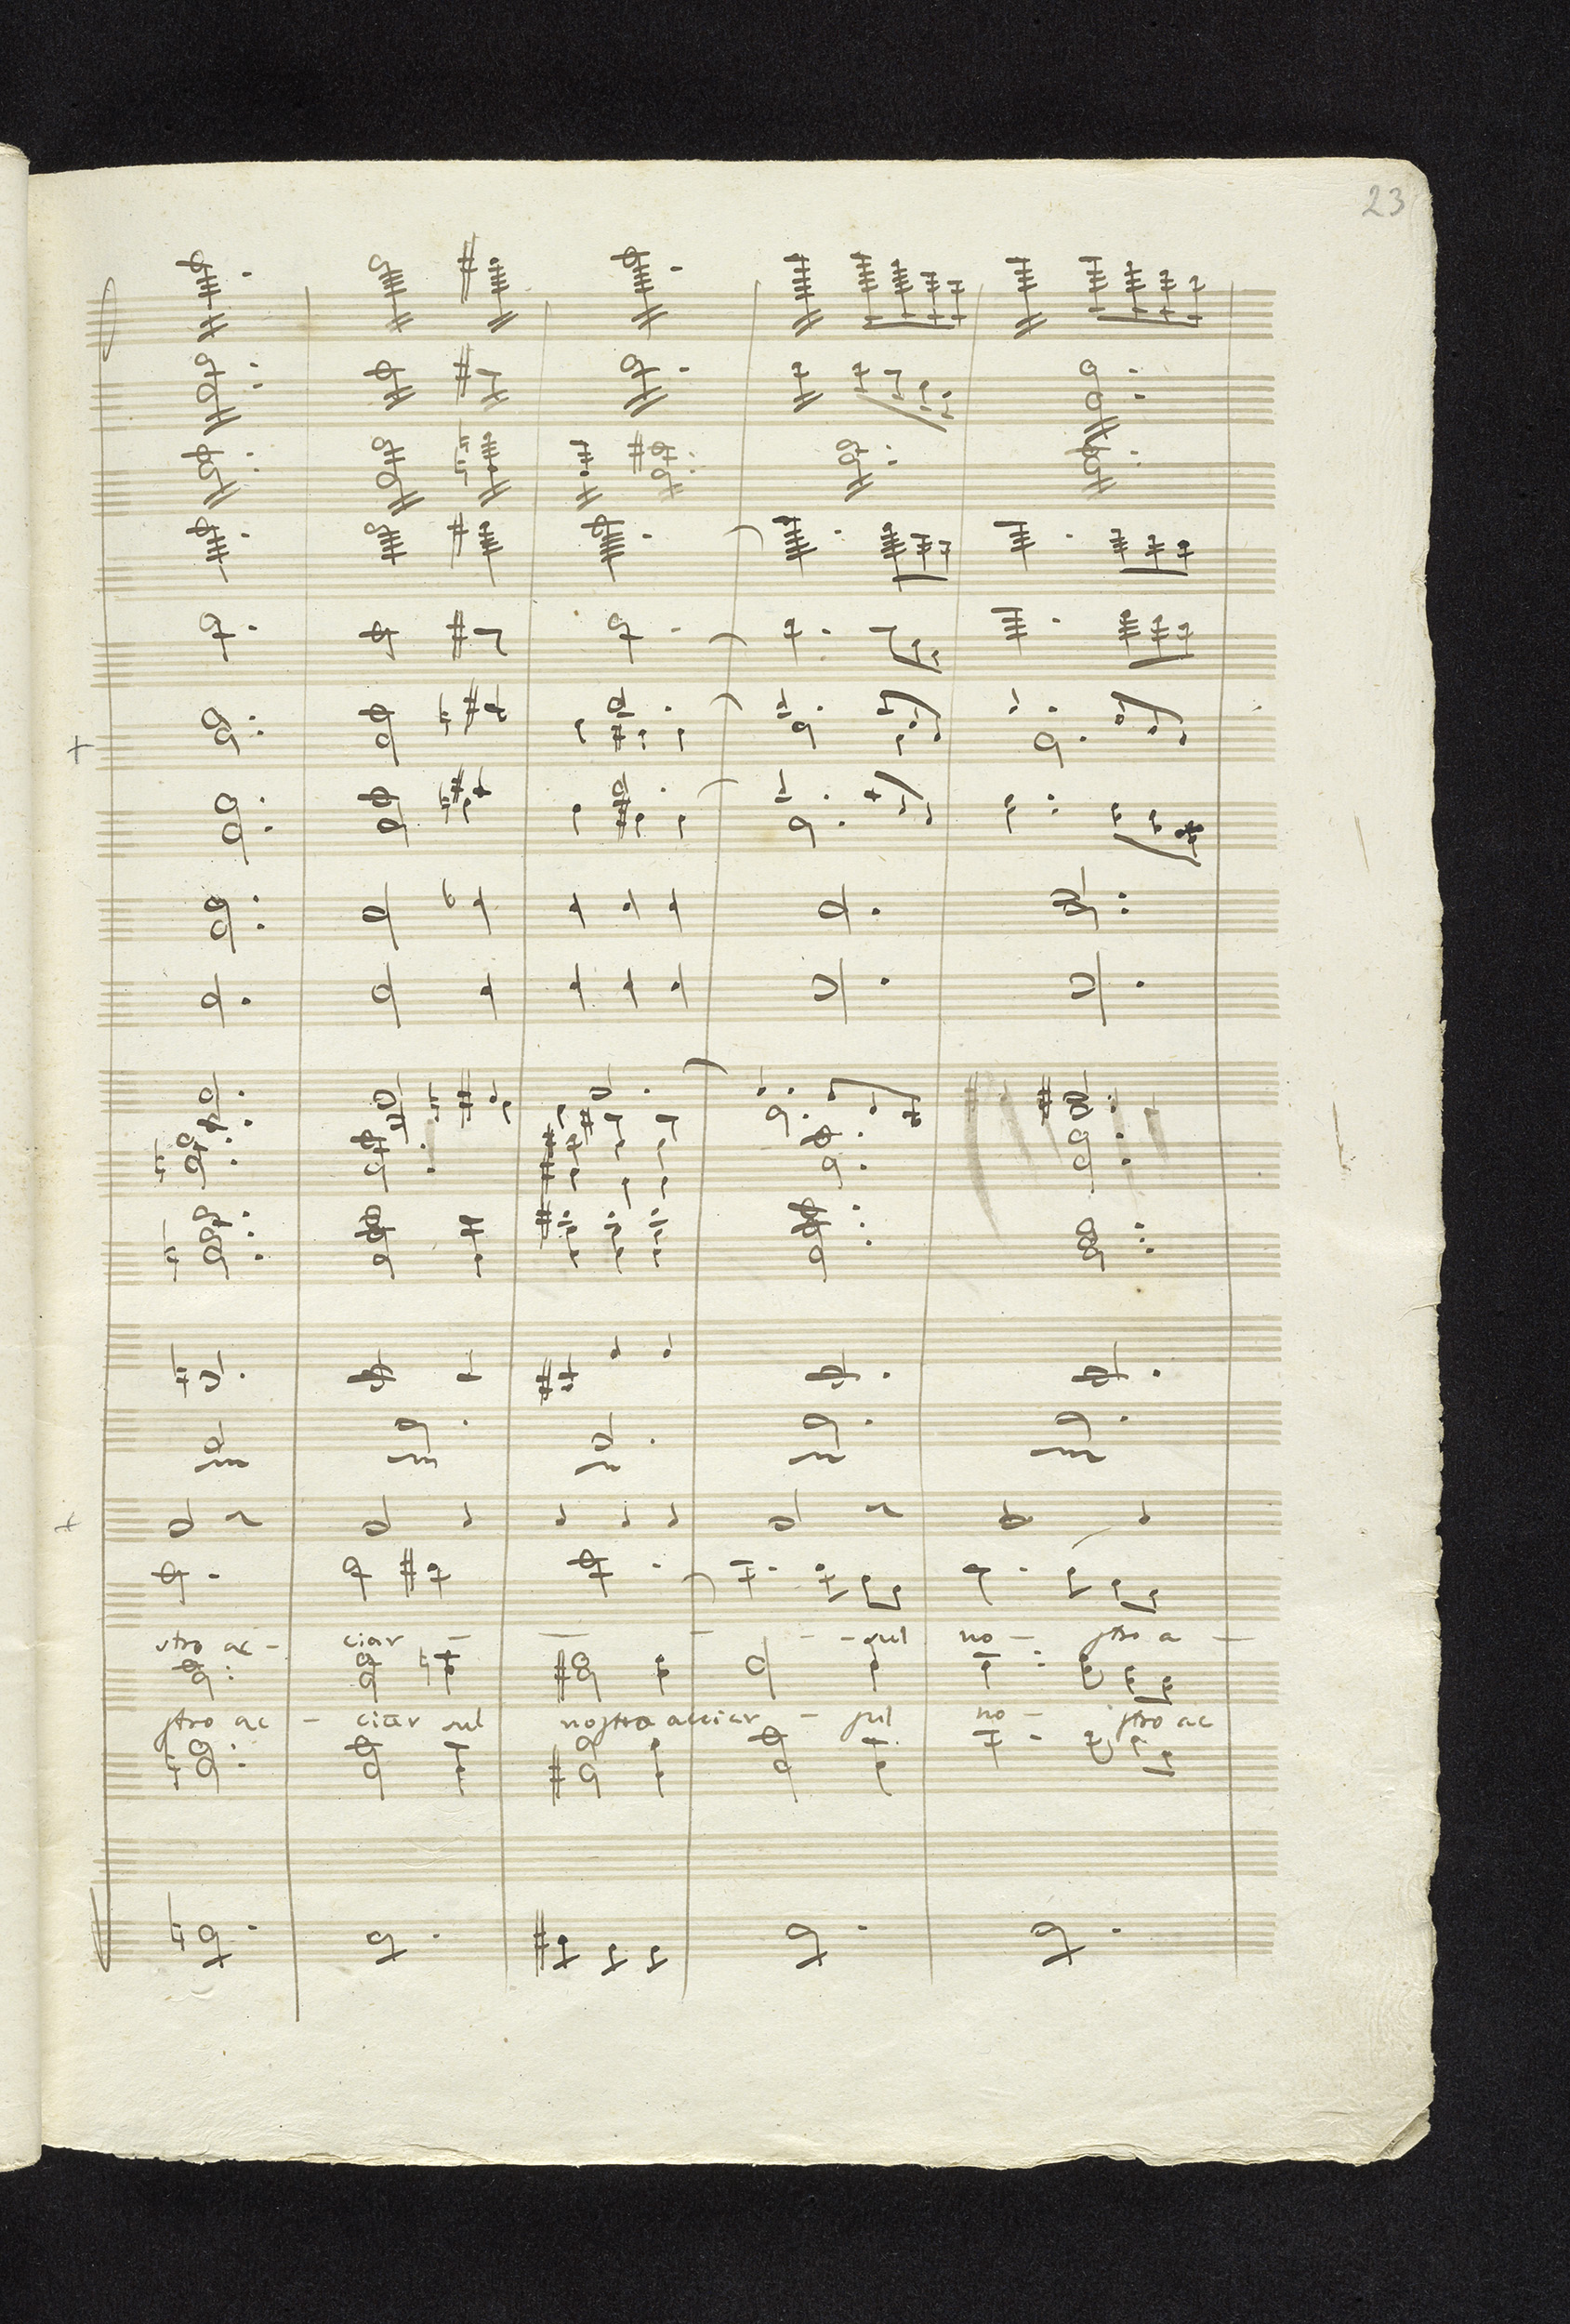 23
stro ac - ciar - - - - - sul no - stro a -
stro ac - ciar sul nostro acciar - sul no - stro ac